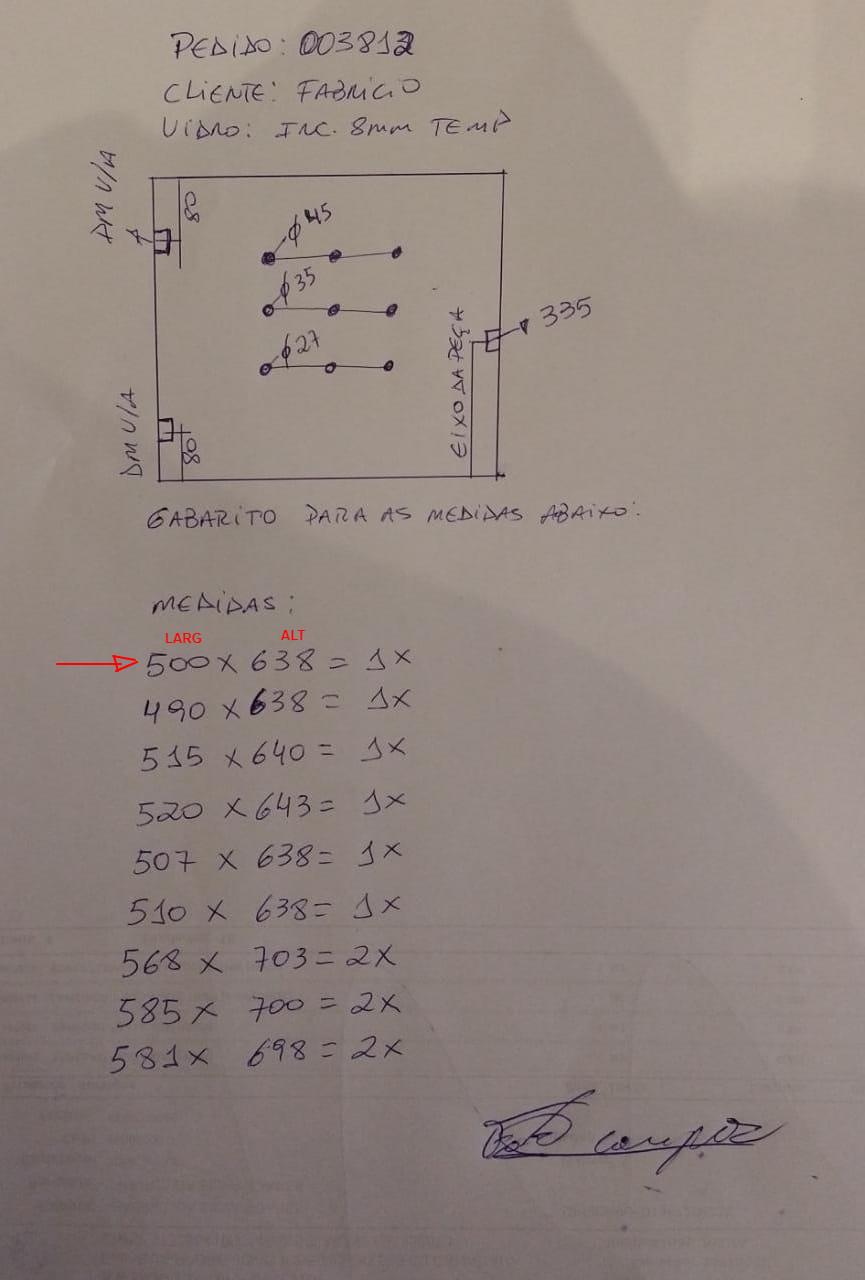 PEDIDO: 003812
CLIENTE: FABRICIO
VIDRO: INC. 8mm TEMP
DM V/A
80
φ45
φ35
φ27
335
EIXO DA PEÇA
DM V/A
80
GABARITO PARA AS MEDIDAS ABAIXO:
MEDIDAS:
LARG ALT
500 x 638 = 1x
490 x 638 = 1x
515 x 640 = 1x
520 x 643 = 1x
507 x 638 = 1x
510 x 638 = 1x
568 x 703 = 2x
585 x 700 = 2x
581 x 698 = 2x